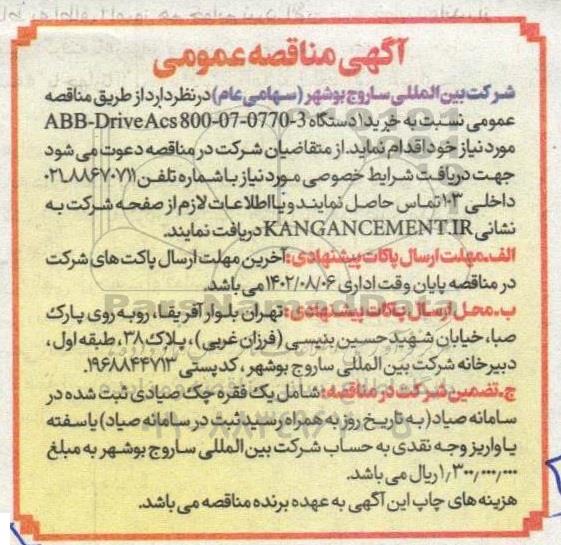 آگهی مناقصه عمومی
شرکت بین المللی ساروج بوشهر (سهامی عام) در نظر دارد از طریق مناقصه
عمومی نسبت به خرید ۱ دستگاه ABB-Drive Acs 800-07-0770-3
مورد نیاز خود اقدام نماید. از متقاضیان شرکت در مناقصه دعوت می شود
جهت دریافت شرایط خصوصی مورد نیاز با شماره تلفن ۸۸۶۷۰۷۱۱-۰۲۱
داخلی ۱۰۳ تماس حاصل نمایند و یا اطلاعات لازم از صفحه شرکت به
نشانی KANGANCEMENT.IR دریافت نمایند.
الف. مهلت ارسال پاکات پیشنهادی: آخرین مهلت ارسال پاکت های شرکت
در مناقصه پایان وقت اداری ۱۴۰۲/۰۸/۰۶ می باشد.
ب. محل ارسال پاکات پیشنهادی: تهران بلوار آفریقا، روبه روی پارک
صبا، خیابان شهید حسین بنیسی (فرزان غربی)، پلاک ۳۸، طبقه اول،
دبیرخانه شرکت بین المللی ساروج بوشهر، کدپستی ۱۹۶۸۸۴۴۷۱۳.
ج. تضمین شرکت در مناقصه: شامل یک فقره چک صیادی ثبت شده در
سامانه صیاد (به تاریخ روز به همراه رسید ثبت در سامانه صیاد) یا سفته
یا واریز وجه نقدی به حساب شرکت بین المللی ساروج بوشهر به مبلغ
۱٫۳۰۰٫۰۰۰٫۰۰۰ ریال می باشد.
هزینه های چاپ این آگهی به عهده برنده مناقصه می باشد.
ParsNamadData